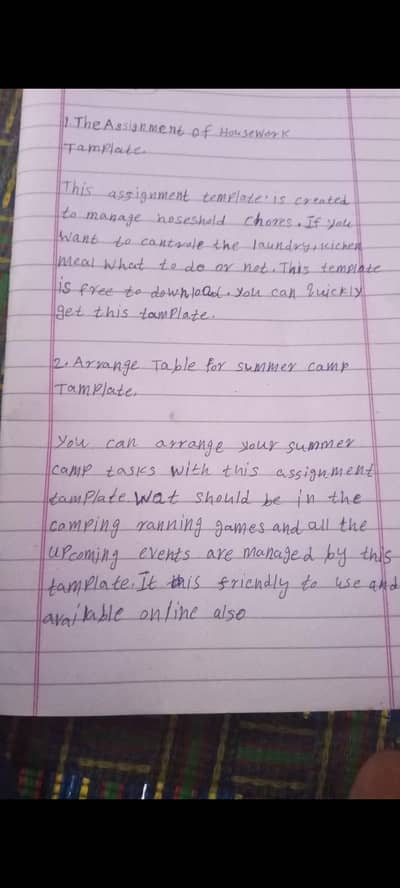 1. The Assignment of Housework
Tamplate.
This assignment template is created
to manage hoseshold chores. If you
want to cantrole the laundry, kichen
meal what to do or not. This template
is free to download. you can quickly
get this tamplate.
2. Arrange Table for summer camp
Tamplate.
you can arrange your summer
camp tasks with this assignment
tamplate. Wat should be in the
camping ranning games and all the
upcoming events are managed by this
tamplate. It is friendly to use and
available online also